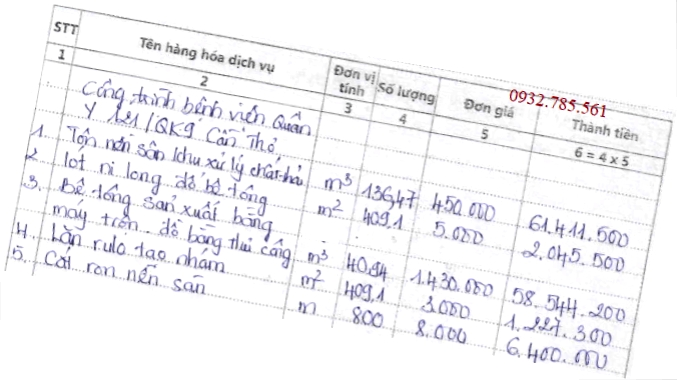 0932.785.561
STT Tên hàng hóa dịch vụ Đơn vị tính Số lượng Đơn giá Thành tiền
1 2 3 4 5 6 = 4 x 5
Công trình bệnh viện Quân
Y 121/QK9 Cần Thơ
1. Tôn nền sân khu xử lý chất thải m³ 136,47 450.000 61.411.500
2. lót ni long đổ bê tông m² 409.1 5.000 2.045.500
3. Bê tông sản xuất bằng
máy trộn. đổ bằng thủ công m³ 40,94 1.430.000 58.544.200
4. Lăn rulo tạo nhám m² 409,1 3.000 1.227.300
5. Cắt ron nền sân m 800 8.000 6.400.000